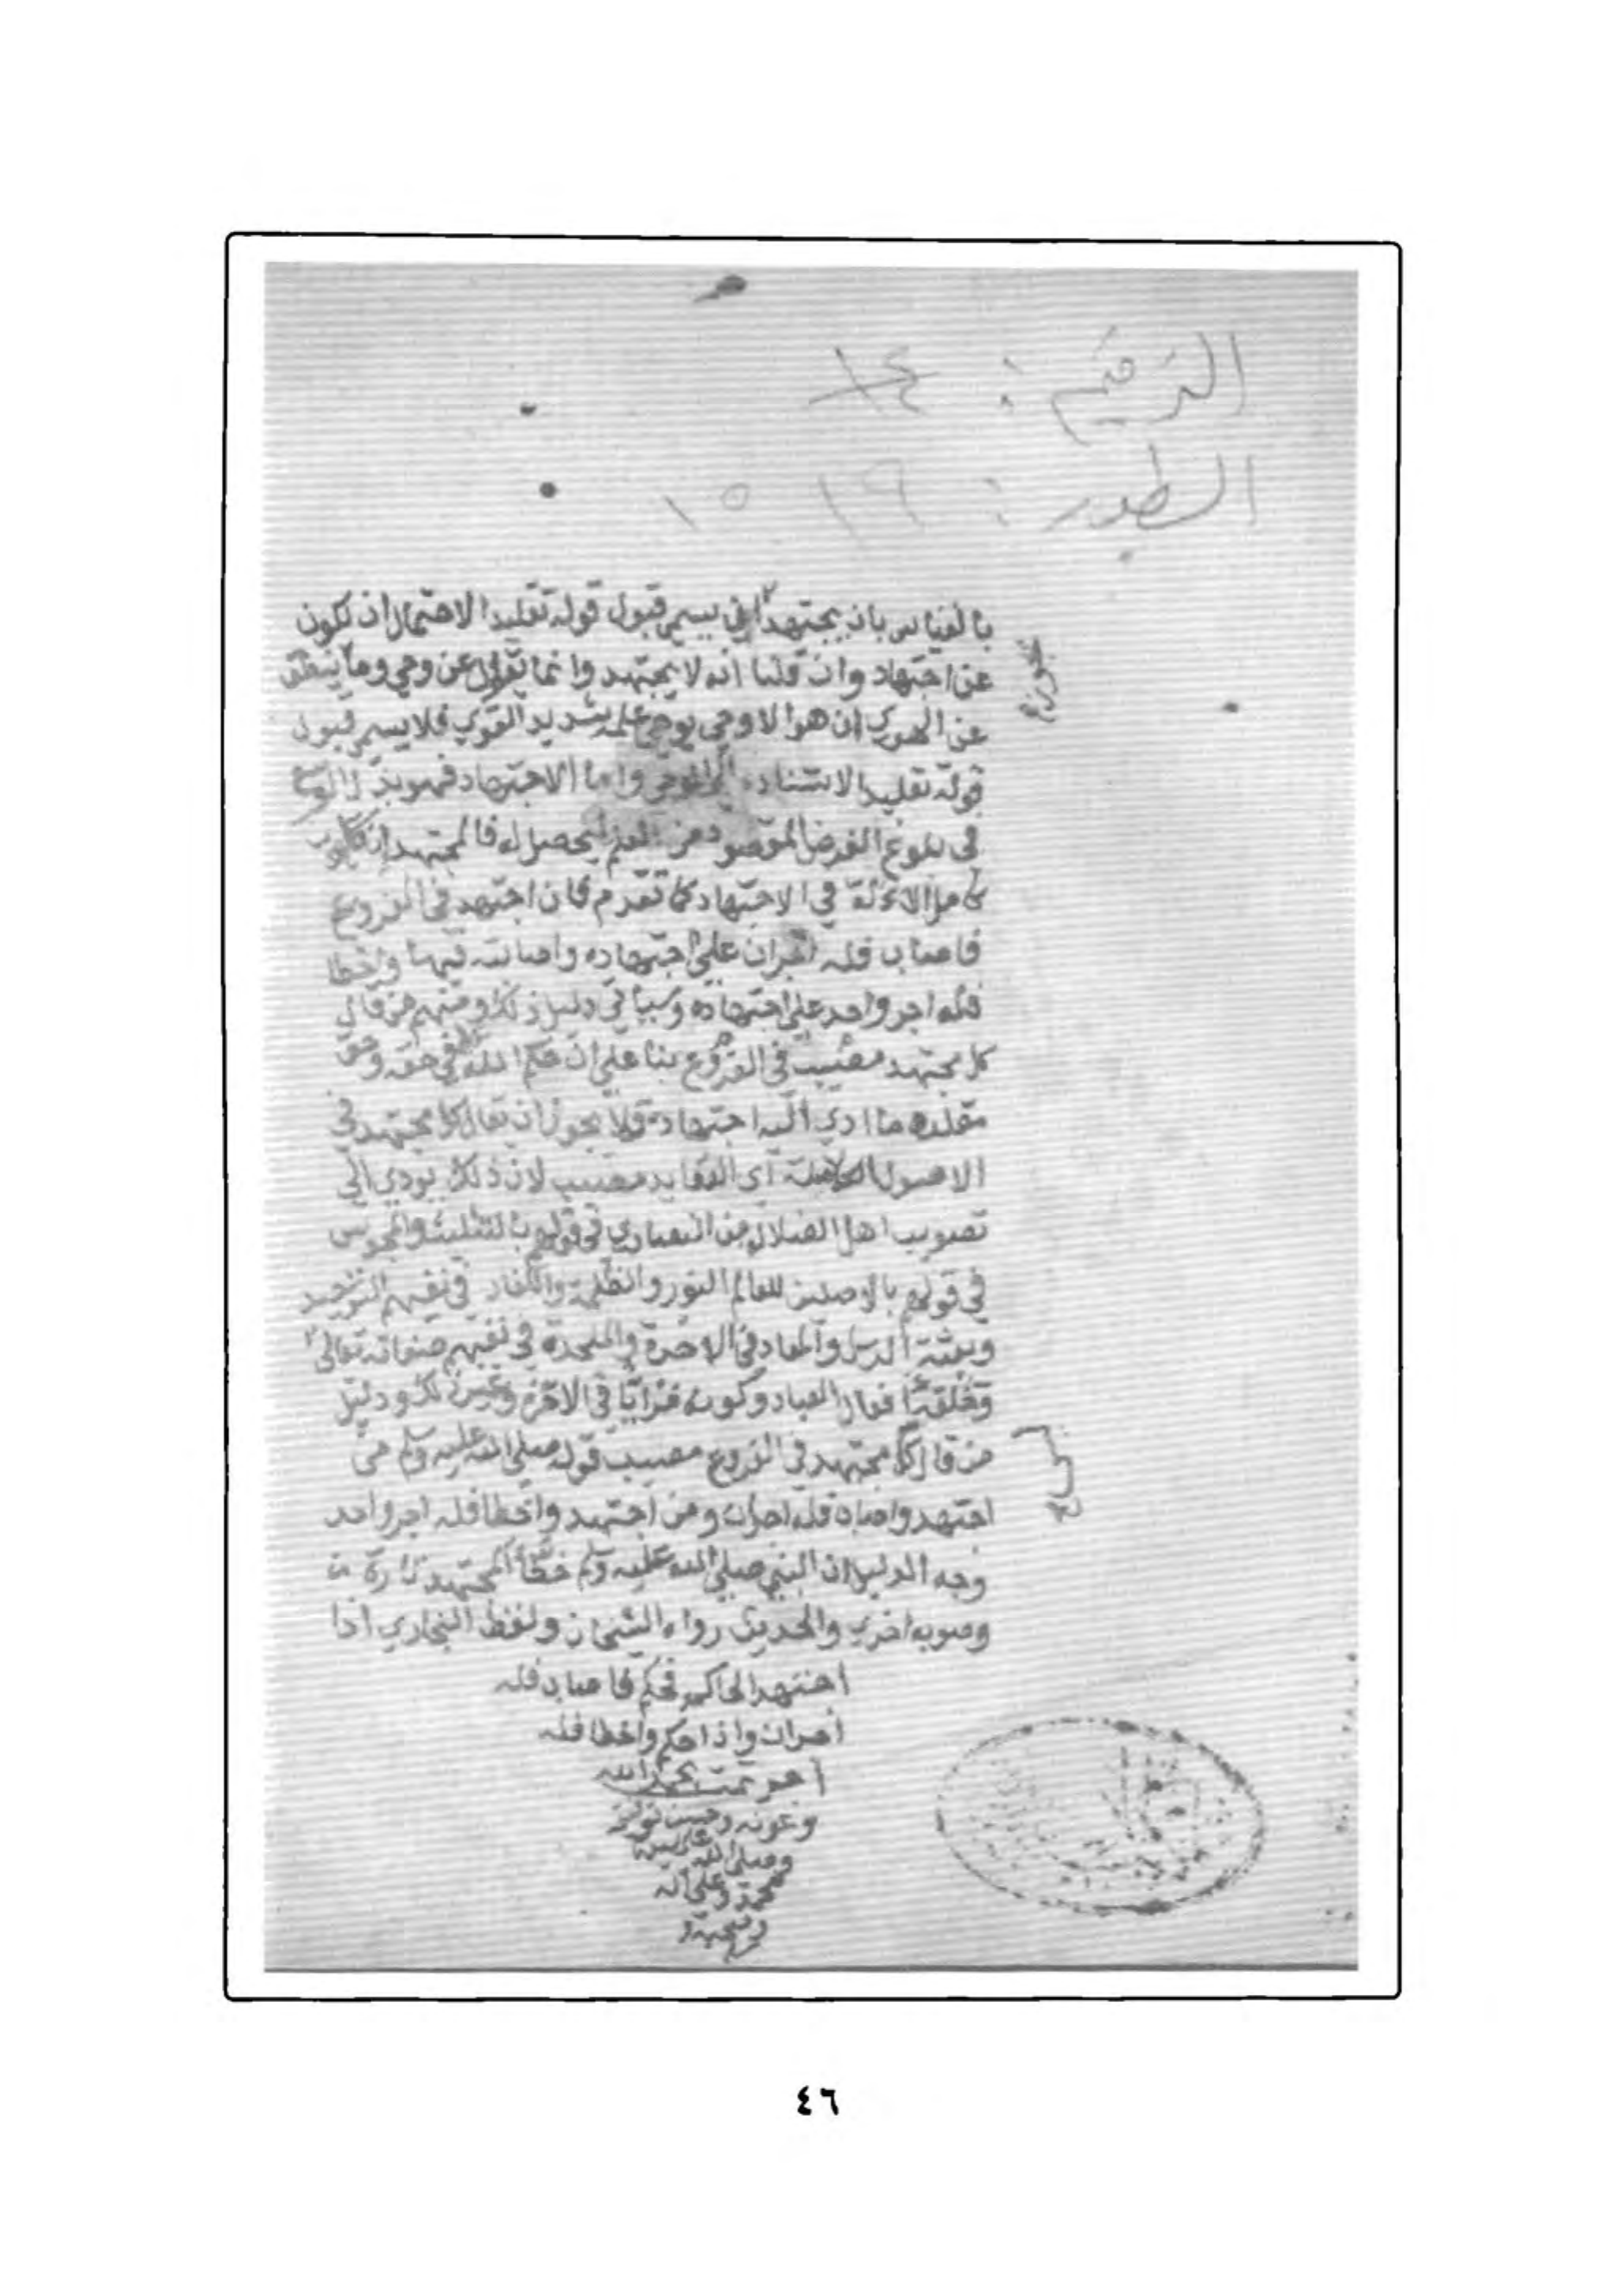 الترقيم : ١٤
السطور : ١٩ ١٥
بالقياس بان يجتهد في يسمي قبول قوله تقليدا لاحتمال ان تكون
عن اجتهاد وان قلنا انه لا يجتهد وانما يقول عن وحي وما ينطق
عن الهوي ان هو الا وحي يوحي علمه شديد القوي فلا يسمي قبول
قوله تقليدا لاستناده الي الوحي واما الاجتهاد فهو بذل الوسع
في بلوغ الغرض المقصود من العلم ليحصل له فالمجتهد ان كان
كامل الالة في الاجتهاد كما تقدم فان اجتهد في الفروع
فاصاب فله اجران علي اجتهاده واصابته فيها واخطا
فله اجر واحد علي اجتهاده وسياتي دليل ذلك ومنهم من قال
كل مجتهد مصيب في الفروع بنا علي ان حكم الله في حقه وحق
مقلده ما ادي اليه اجتهاده ولا يجوز ان يقال كل مجتهد في
الاصول الكلامية اي العقايد مصيب لان ذلك يودي الي
تصويب اهل الضلال من النصاري في قولهم بالتثليث والمجوس
في قولهم بالاصلين للعالم النور والظلمة والكفار في نفيهم التوحيد
وبعثة الرسل والمعاد في الاخرة والملحدة في نفيهم صفاته تعالي
وخلقه افعال العباد وكونه مرايا في الاخرة وغير ذلك ودليل
من قال كل مجتهد في الفروع مصيب قوله صلي الله عليه وسلم من
اجتهد واصاب فله اجران ومن اجتهد واخطا فله اجر واحد
وجه الدليل ان النبي صلي الله عليه وسلم خطا المجتهد تارة
وصوبه اخري والحديث رواه الشيخان ولفظ البخاري اذا
اجتهد الحاكم فحكم فاصاب فله
اجران واذا حكم واخطا فله
اجر تمت بحمد الله
وعونه وحسن توفيقه
وصلي الله علي سيدنا
محمد وعلي اله
وصحبه و
سلم
٤٦